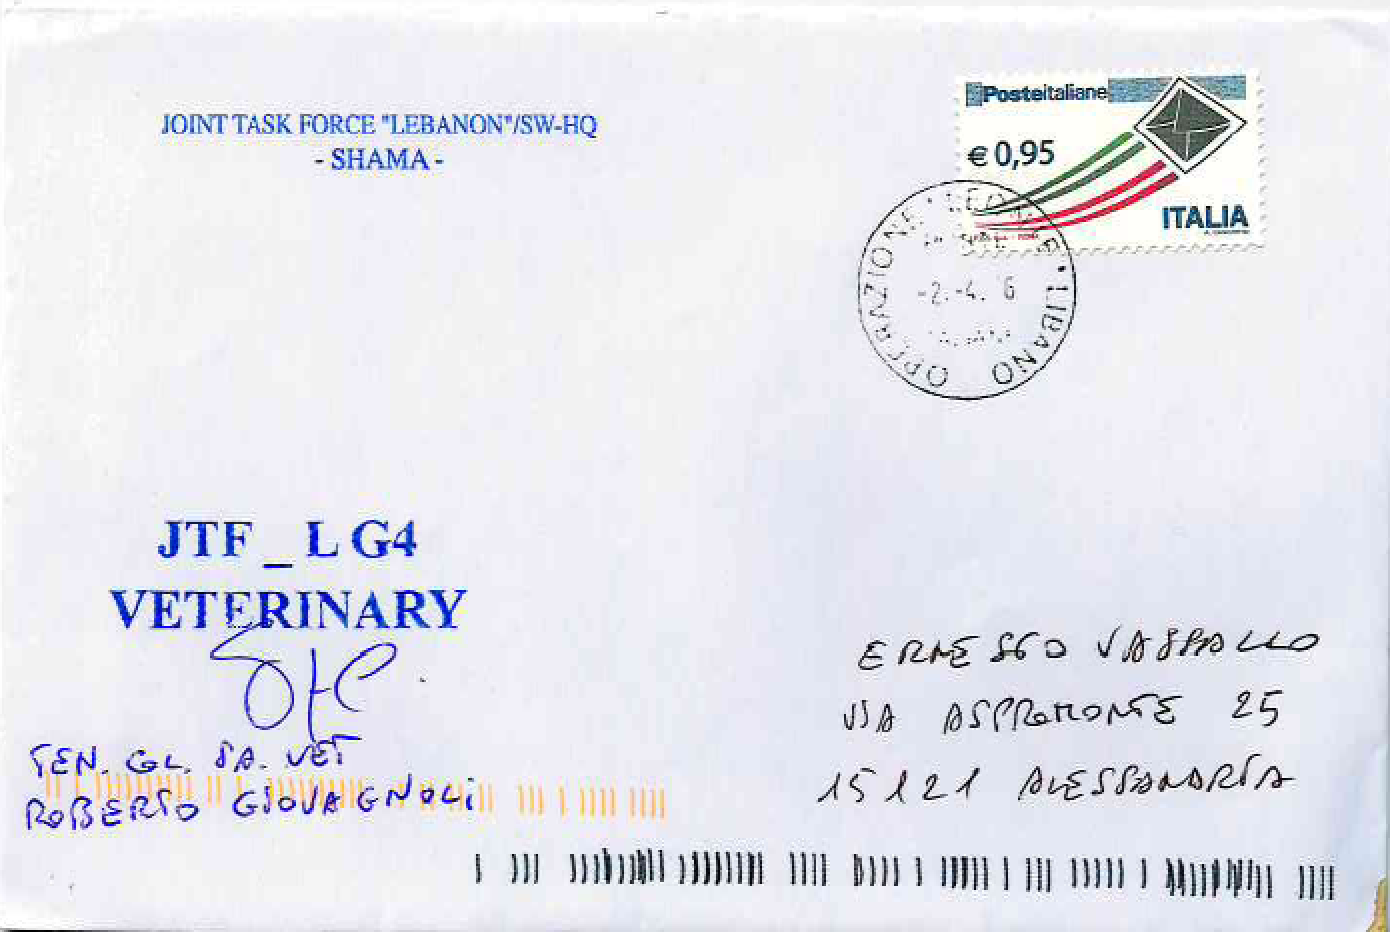 JOINT TASK FORCE "LEBANON"/SW-HQ
- SHAMA -
Posteitaliane
€ 0,95
ITALIA
OPERAZIONE LEONTE * LIBANO
-2.-4. 6
JTF _ L G4
VETERINARY
TEN. COL. SA. VET
ROBERTO GIOVAGNOLI
ERNESTO VASSALLO
VIA ASPROMONTE 25
15121 ALESSANDRIA